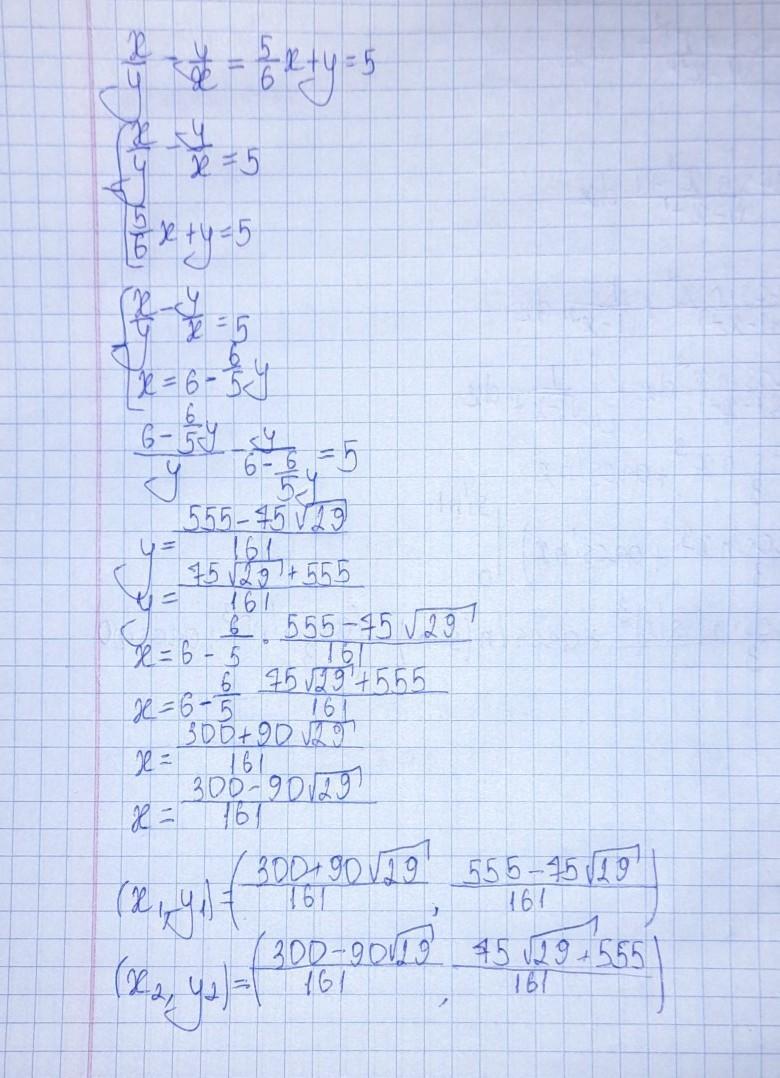 x/y - y/x = 5/6 x + y = 5
{ x/y - y/x = 5
5/6 x + y = 5
{ x/y - y/x = 5
x = 6 - 6/5 y
(6 - 6/5 y)/y - y/(6 - 6/5 y) = 5
y = (555 - 75√29)/161
y = (75√29 + 555)/161
x = 6 - 6/5 · (555 - 75√29)/161
x = 6 - 6/5 (75√29 + 555)/161
x = (300 + 90√29)/161
x = (300 - 90√29)/161
(x₁, y₁) = ((300 + 90√29)/161, (555 - 75√29)/161)
(x₂, y₂) = ((300 - 90√29)/161, (75√29 + 555)/161)